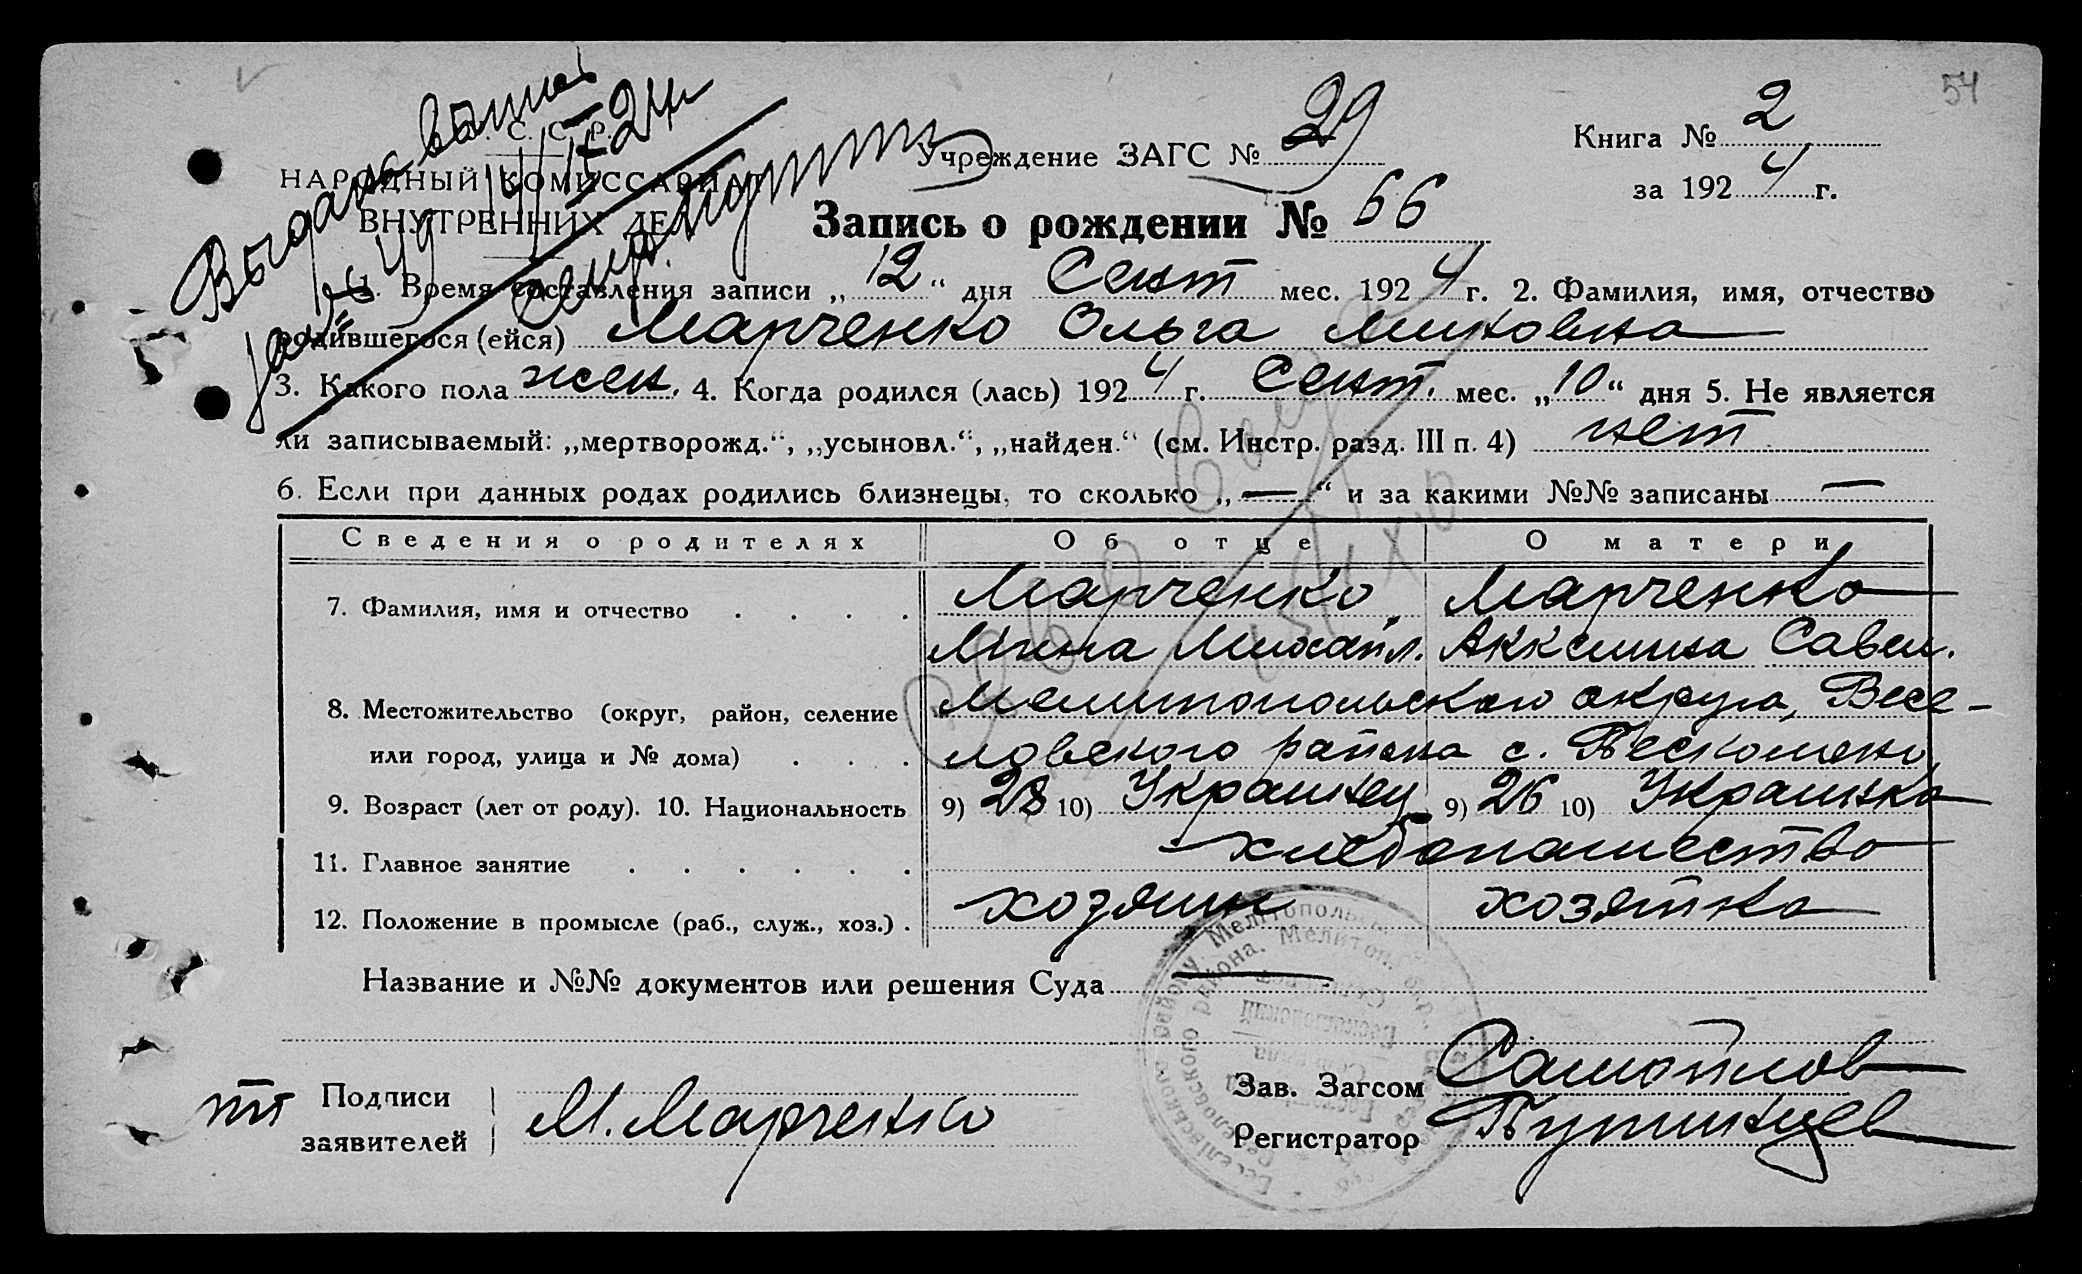 54
Выдана выпись
за № 49 14/IX 24 г.
С. С. Р.
НАРОДНЫЙ КОМИССАРИАТ
ВНУТРЕННИХ ДЕЛ.
Учреждение ЗАГС № 29
Книга № 2
за 1924 г.
Запись о рождении № 66
1. Время составления записи „12“ дня Сент мес. 1924 г. 2. Фамилия, имя, отчество
родившегося (ейся) Марченко Ольга Миновна
3. Какого пола жен. 4. Когда родился (лась) 1924 г. Сент. мес. „10“ дня 5. Не является
ли записываемый: „мертворожд.“, „усыновл.“, „найден.“ (см. Инстр. разд. III п. 4) нет
6. Если при данных родах родились близнецы, то сколько „—“ и за какими №№ записаны —
Сведения о родителях Об отце О матери
7. Фамилия, имя и отчество . . . . Марченко Марченко
Мина Михайл. Акксина Савел.
8. Местожительство (округ, район, селение Мелитопольского округа, Весе-
или город, улица и № дома) . . . ловского района с.
9. Возраст (лет от роду). 10. Национальность 9) 28 10) Украинец 9) 26 10) Украинка
11. Главное занятие . . . . . . хлебопашество
12. Положение в промысле (раб., служ., хоз.) . хозяин хозяйка
Название и №№ документов или решения Суда —
Подписи
заявителей М. Марченко
Зав. Загсом Самойлов
Регистратор Путинцев